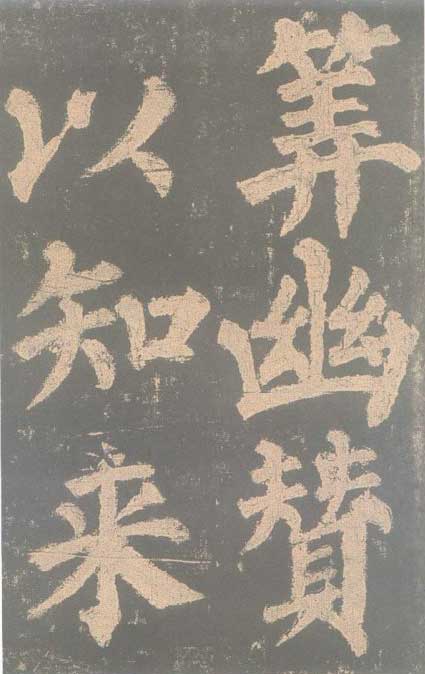 筭幽賛
以知来